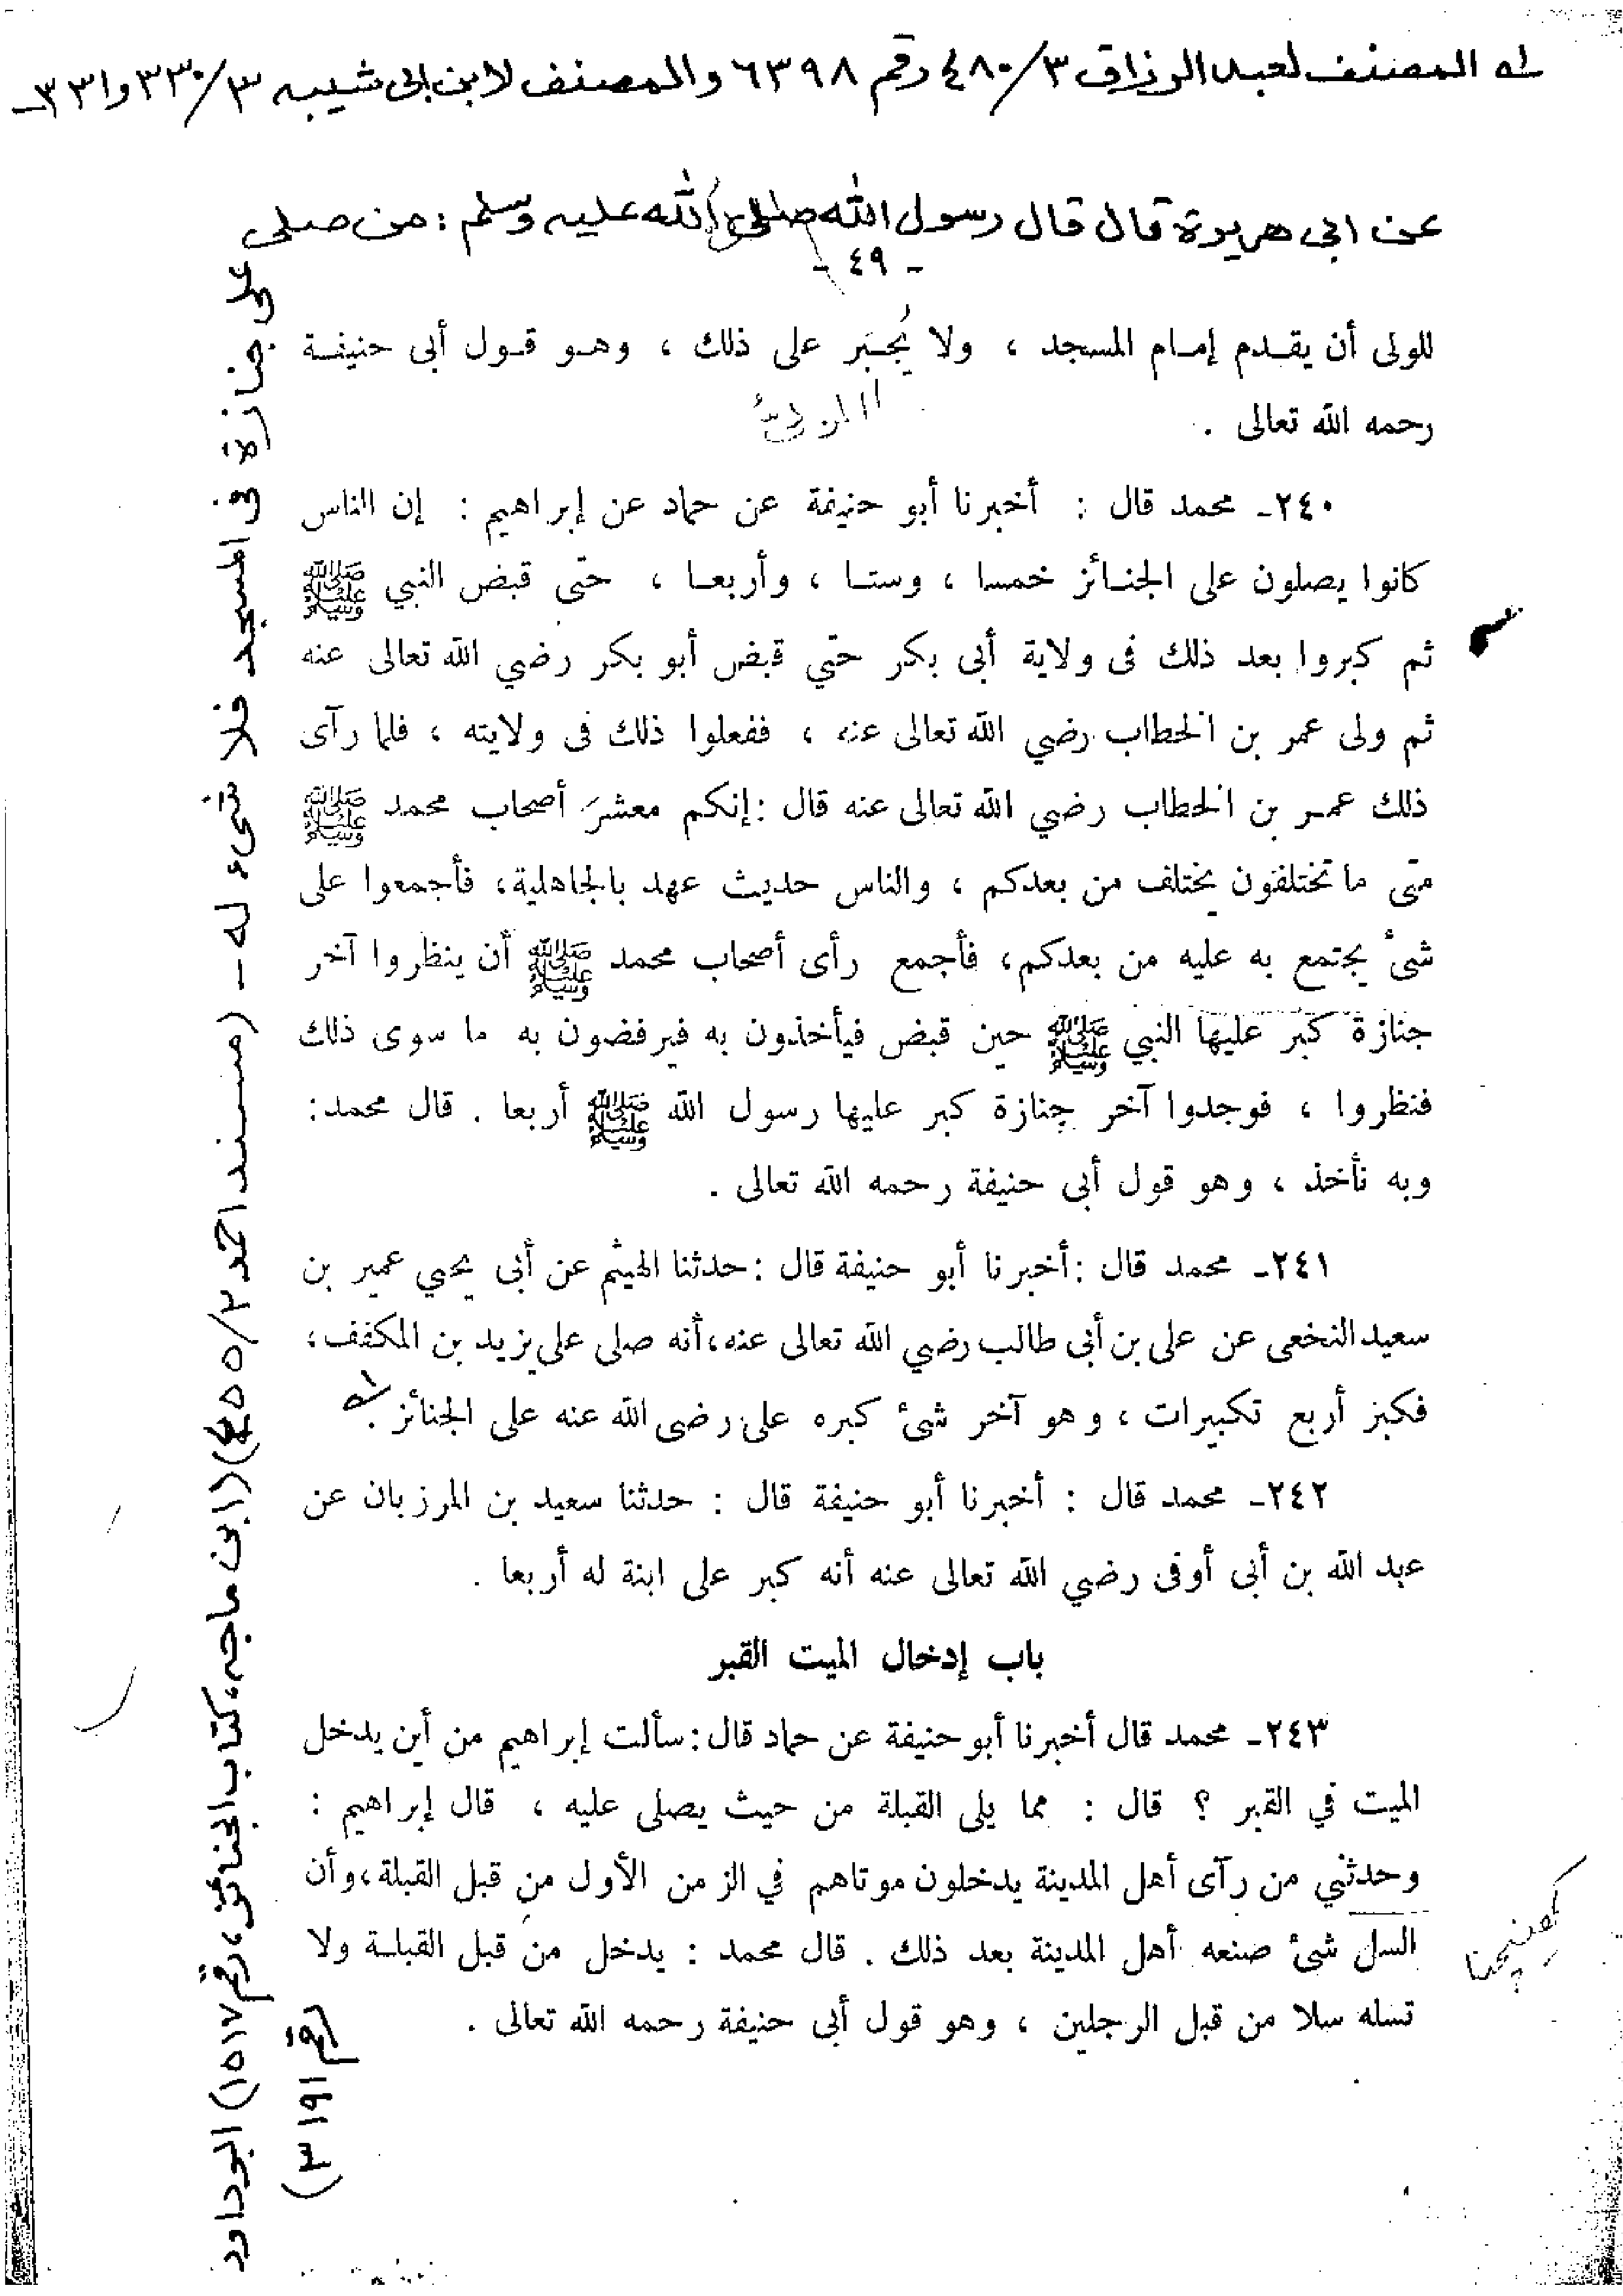 له المصنف لعبد الرزاق ٣/٤٨٠ رقم ٦٣٩٨ والمصنف لابن ابى شيبه ٣/٣٣٠ و٣٣١ـ
عن ابى هريرة قال قال رسول الله صلى الله عليه وسلم : من صلى
على جنازة فى المسجد فلا شىء له ـ (مسند احمد ٢/٤٥٥) (ابن ماجه، كتاب الجنائز، رقم ١٥١٧) ابوداود
رقم ٣١٩١)
- ٤٩ -
للولى أن يقدم إمام المسجد ، ولا يُجبَر على ذلك ، وهو قول أبى حنيفة
رحمه الله تعالى .
٢٤٠ـ محمد قال : أخبرنا أبو حنيفة عن حماد عن إبراهيم : إن الناس
كانوا يصلون على الجنائز خمسا ، وستا ، وأربعا ، حتى قبض النبي ﷺ
ثم كبروا بعد ذلك فى ولاية أبى بكر حتي قبض أبو بكر رضي الله تعالى عنه
ثم ولى عمر بن الخطاب رضي الله تعالى عنه ، ففعلوا ذلك فى ولايته ، فلما رآى
ذلك عمر بن الخطاب رضي الله تعالى عنه قال : إنكم معشرَ أصحاب محمد ﷺ
متى ما تختلفون يختلف من بعدكم ، والناس حديث عهد بالجاهلية، فأجمعوا على
شئ يجتمع به عليه من بعدكم، فأجمع رأى أصحاب محمد ﷺ أن ينظروا آخر
جنازة كبر عليها النبي ﷺ حين قبض فيأخذون به فيرفضون به ما سوى ذلك
فنظروا ، فوجدوا آخر جنازة كبر عليها رسول الله ﷺ أربعا . قال محمد:
وبه نأخذ ، وهو قول أبى حنيفة رحمه الله تعالى .
٢٤١ـ محمد قال : أخبرنا أبو حنيفة قال : حدثنا الهيثم عن أبى يحيي عمير بن
سعيد النخعى عن على بن أبى طالب رضي الله تعالى عنه، أنه صلى على يزيد بن المكفف،
فكبر أربع تكبيرات ، وهو آخر شئ كبره على رضى الله عنه على الجنائز . له
٢٤٢ـ محمد قال : أخبرنا أبو حنيفة قال : حدثنا سعيد بن المرزبان عن
عبد الله بن أبى أوفى رضي الله تعالى عنه أنه كبر على ابنة له أربعا .
باب إدخال الميت القبر
٢٤٣ـ محمد قال أخبرنا أبو حنيفة عن حماد قال : سألت إبراهيم من أين يدخل
الميت في القبر ؟ قال : مما يلى القبلة من حيث يصلى عليه ، قال إبراهيم :
وحدثني من رآى أهل المدينة يدخلون موتاهم في الزمن الأول من قبل القبلة، وأن
السل شئ صنعه أهل المدينة بعد ذلك . قال محمد : يدخل من قبل القبلة ولا
تسله سلا من قبل الرجلين ، وهو قول أبى حنيفة رحمه الله تعالى .
كھينچنا